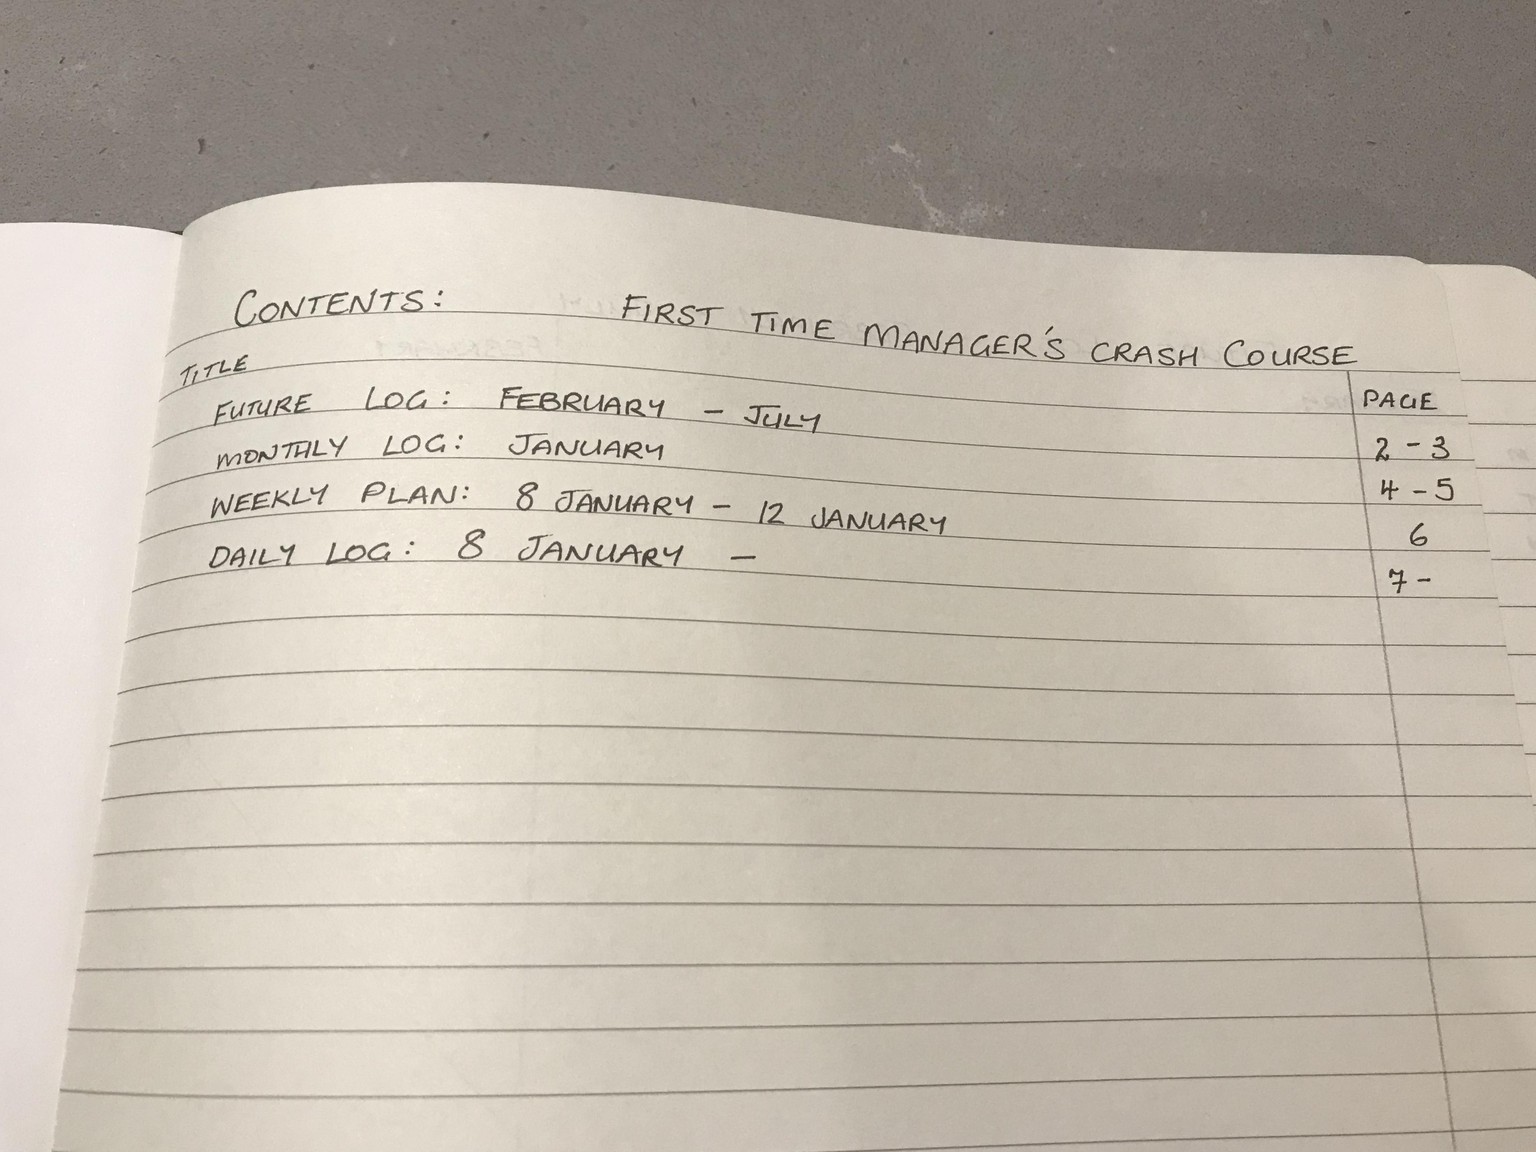 CONTENTS: FIRST TIME MANAGER'S CRASH COURSE
TITLE PAGE
FUTURE LOG: FEBRUARY - JULY 2-3
MONTHLY LOG: JANUARY 4-5
WEEKLY PLAN: 8 JANUARY - 12 JANUARY 6
DAILY LOG: 8 JANUARY - 7-